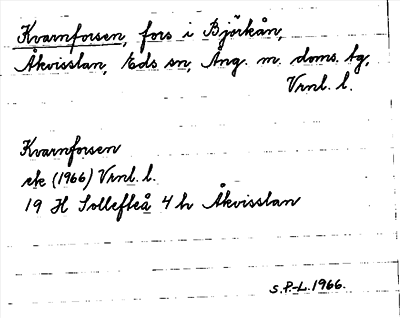 Kvarnforsen, fors i Björkån,
Åkvisslan, Eds sn, Ång. m. doms. tg,
Vrnl. l.
Kvarnforsen
ek (1966) Vrnl. l.
19 H Sollefteå 4 h Åkvisslan
S.P-L. 1966.